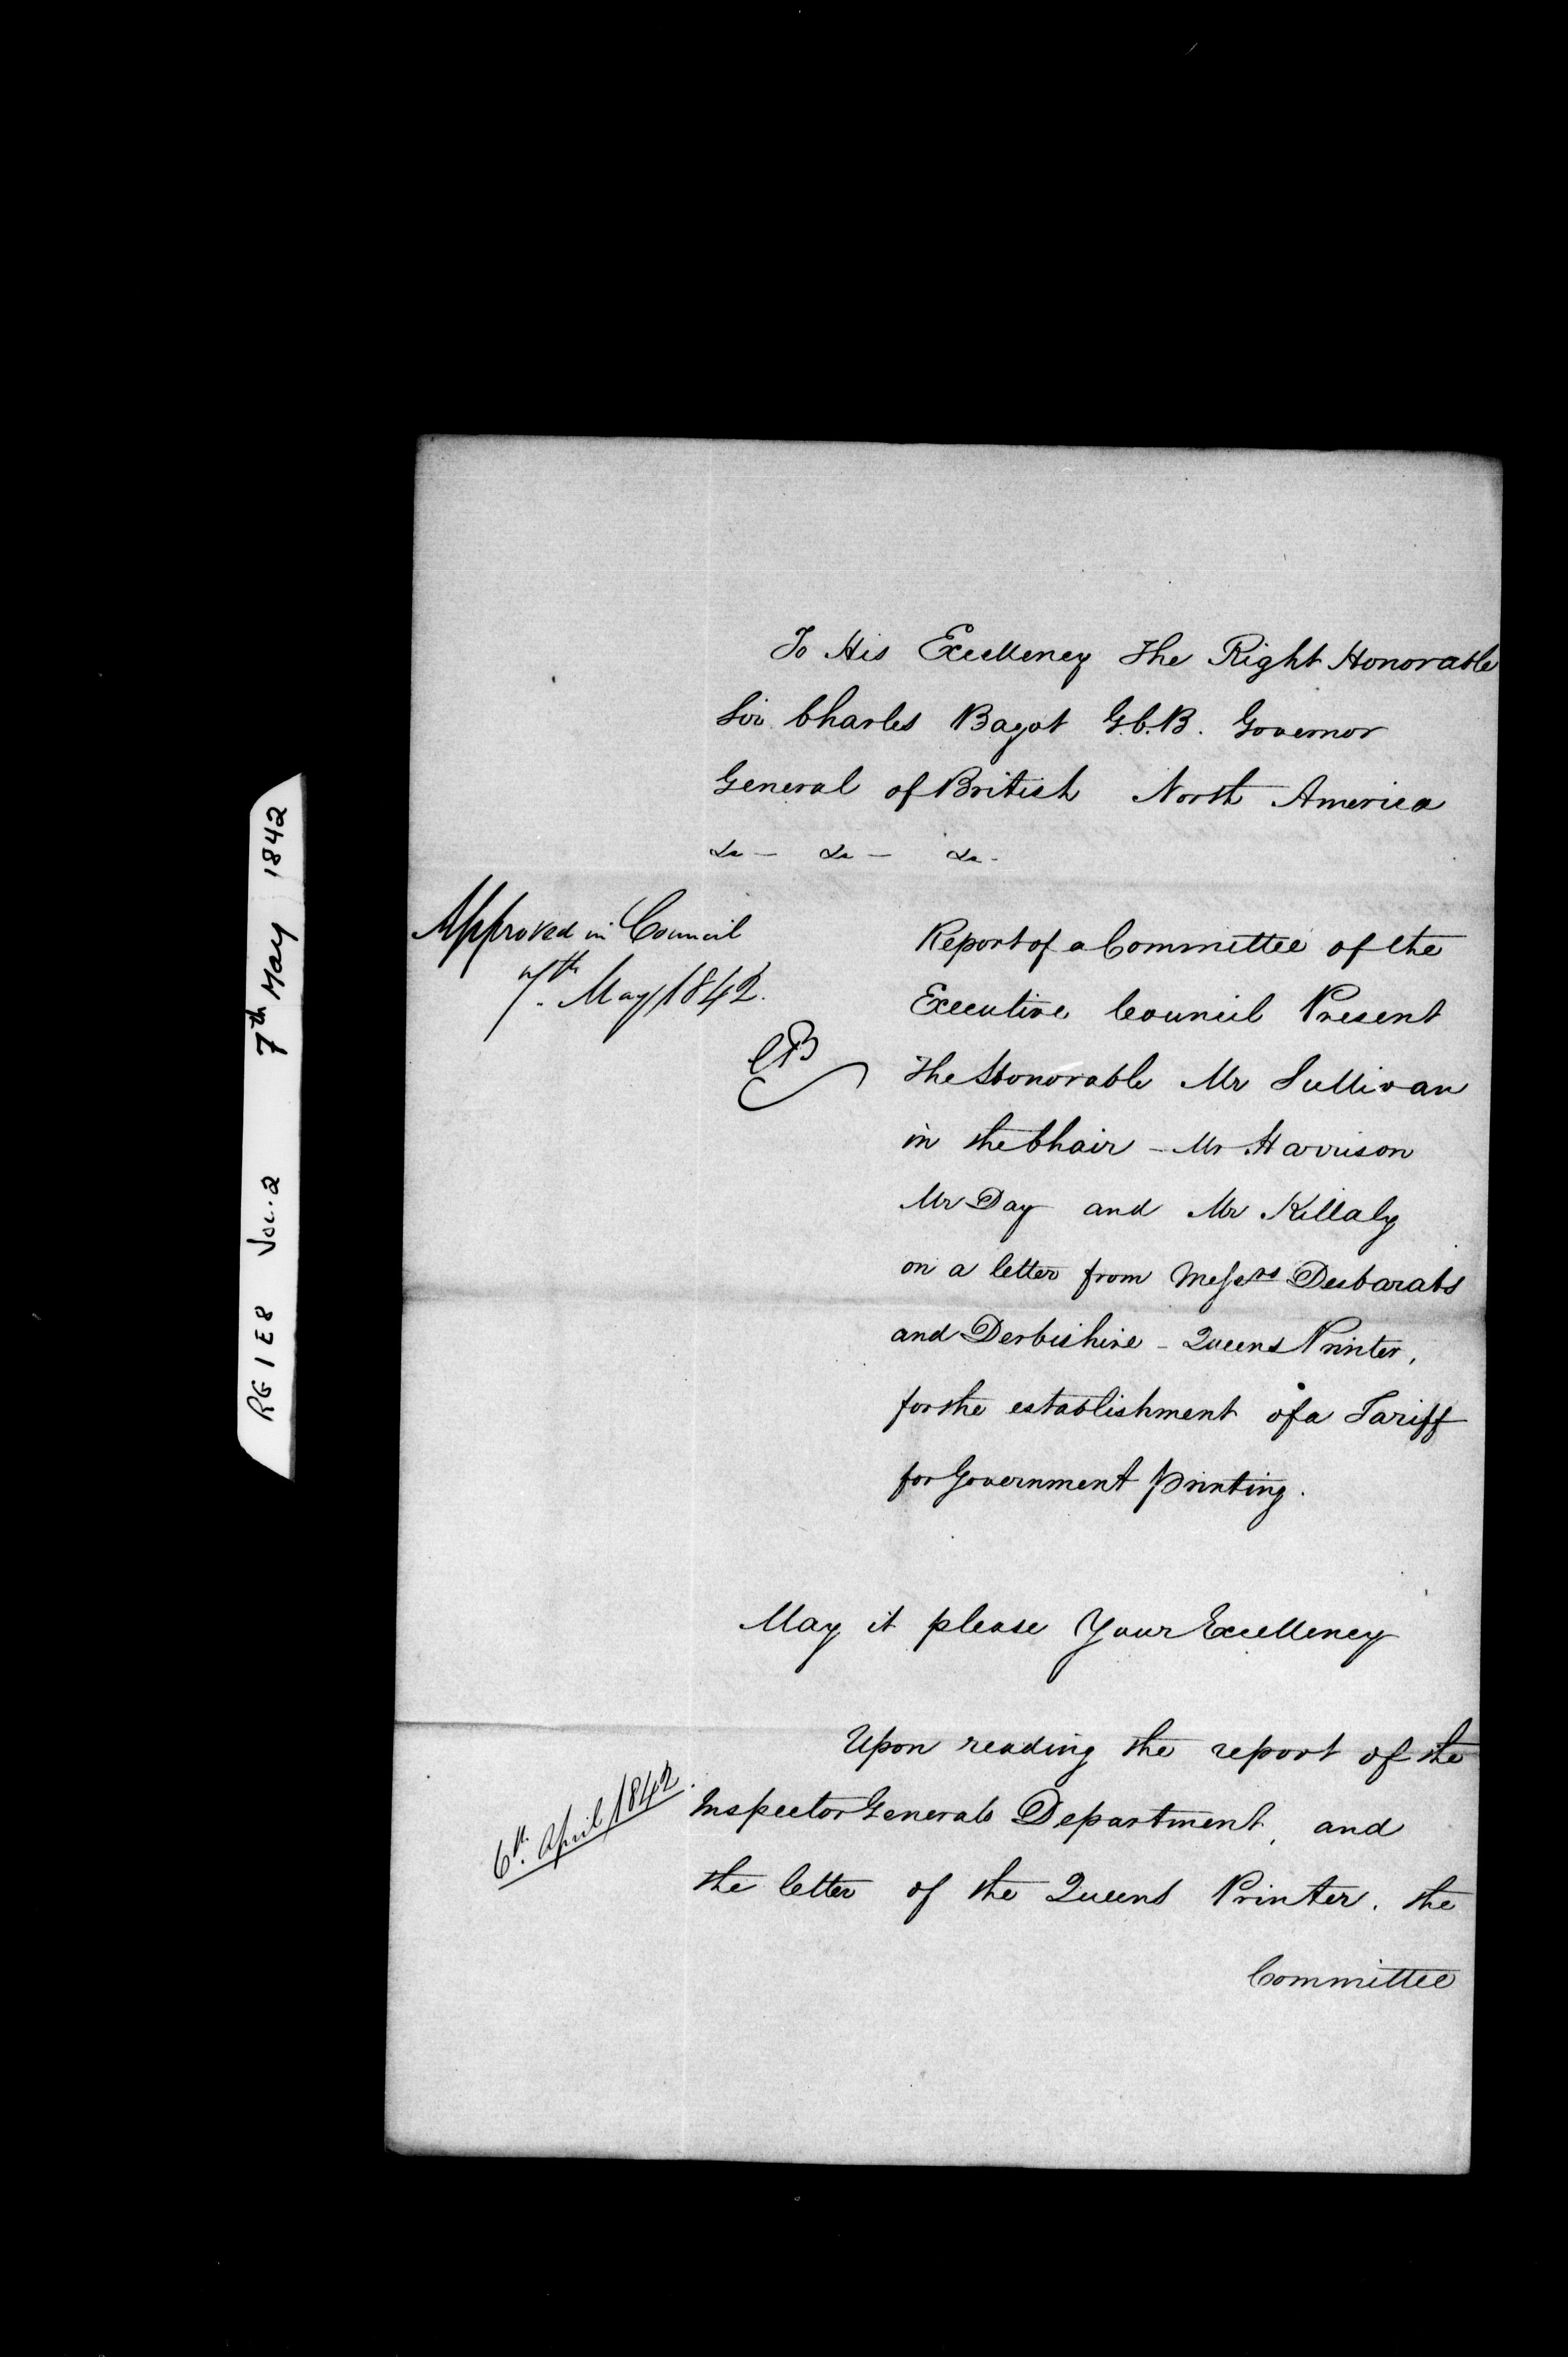 RG 1 E8 Vol. 2 7th May 1842
To His Excellency The Right Honorable
Sir Charles Bagot G.C.B. Governor
General of British North America
&c — &c — &c -
Approved in Council
7th. May 1842.
CB
Report of a Committee of the
Executive Council Present
The Honorable Mr Sullivan
in the Chair - Mr Harrison
Mr Day and Mr Killaly
on a letter from Messrs Desbarats
and Derbishire - Queens Printer,
for the establishment of a Tariff
for Government Printing.
May it please Your Excellency
Upon reading the report of the
6th. April 1842.
Inspector Generals Department, and
the letter of the Queens Printer. the
Committee